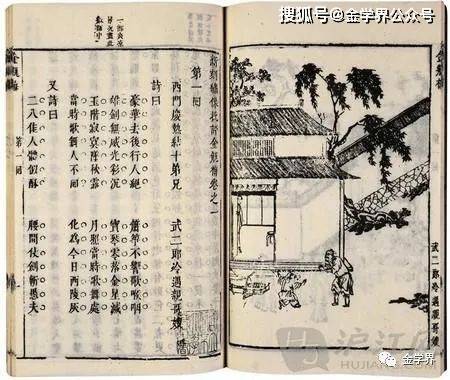 搜狐号@金学界公众号
武二郎冷遇親哥嫂
一部炎凉
景况盡此
數語中
新刻繡像批評金瓶梅卷之一
第一回
西門慶熱結十弟兄 武二郎冷遇親哥嫂
詩曰
豪華去後行人絕 簫箏不響歌喉咽
雄劍無威光彩沉 寶琴零落金星滅
玉階寂寞墜秋露 月照當時歌舞處
當時歌舞人不回 化爲今日西陵灰
又詩曰
二八佳人體似酥 腰間仗劍斬愚夫
金瓶梅
第一回
沪江
HUJIANG
金学界